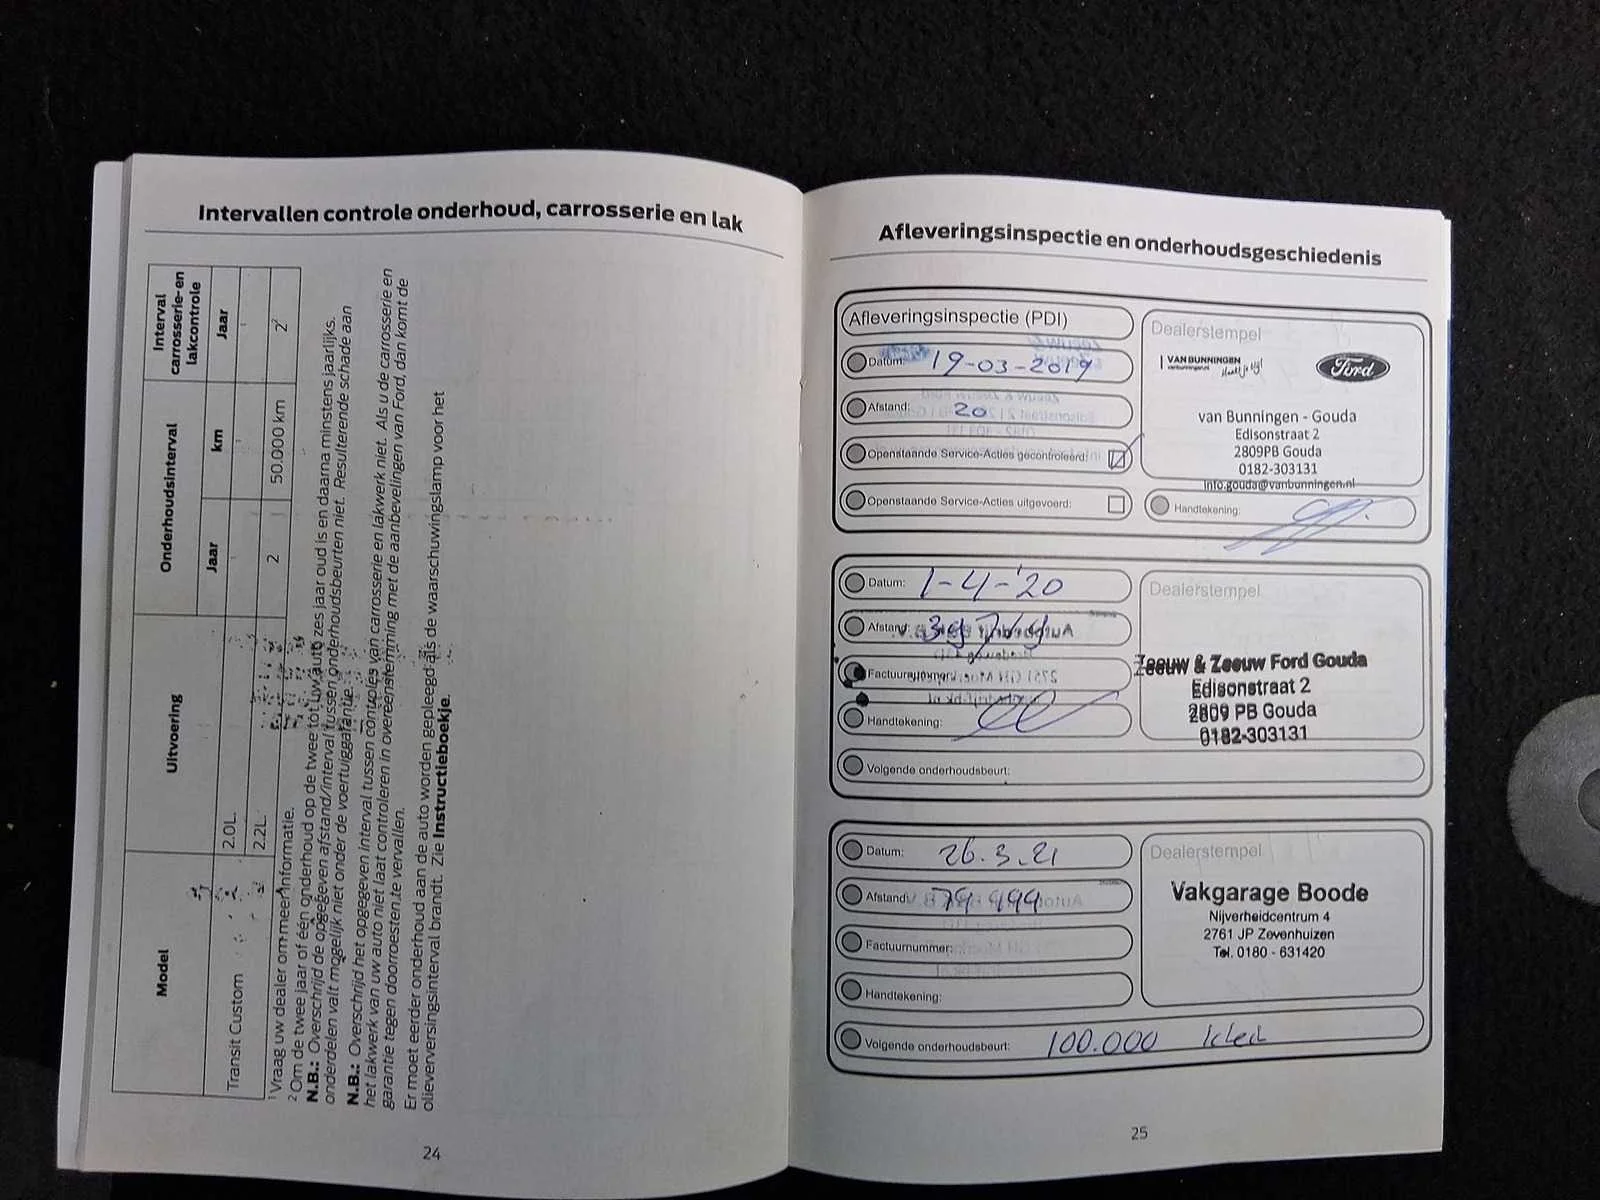 Intervallen controle onderhoud, carrosserie en lak
Model
Uitvoering
Onderhoudsinterval
Interval carrosserie- en lakcontrole
Jaar
km
Jaar
Transit Custom
2.0L.
2.2L.
2
50.000 km
2²
¹ Vraag uw dealer om meer informatie.
² Om de twee jaar of één onderhoud op de twee tot uw auto zes jaar oud is en daarna minstens jaarlijks.
N.B.: Overschrijd de opgegeven afstand/interval tussen onderhoudsbeurten niet. Resulterende schade aan
onderdelen valt mogelijk niet onder de voertuiggarantie.
N.B.: Overschrijd het opgegeven interval tussen controles van carrosserie en lakwerk niet. Als u de carrosserie en
het lakwerk van uw auto niet laat controleren in overeenstemming met de aanbevelingen van Ford, dan komt de
garantie tegen doorroesten te vervallen.
Er moet eerder onderhoud aan de auto worden gepleegd als de waarschuwingslamp voor het
olieverversingsinterval brandt. Zie Instructieboekje.
24
Afleveringsinspectie en onderhoudsgeschiedenis
Afleveringsinspectie (PDI)
Datum: 19-03-2019
Afstand: 20
Openstaande Service-Acties gecontroleerd:
Openstaande Service-Acties uitgevoerd:
Dealerstempel
VAN BUNNINGEN
Ford
van Bunningen - Gouda
Edisonstraat 2
2809PB Gouda
0182-303131
info.gouda@vanbunningen.nl
Handtekening:
Datum: 1-4-'20
Afstand:
Factuurnummer:
Handtekening:
Volgende onderhoudsbeurt:
Dealerstempel
Zeeuw & Zeeuw Ford Gouda
Edisonstraat 2
2809 PB Gouda
0182-303131
Datum: 26.3.21
Afstand: 79 499
Factuurnummer:
Handtekening:
Volgende onderhoudsbeurt: 100.000
Dealerstempel
Vakgarage Boode
Nijverheidcentrum 4
2761 JP Zevenhuizen
Tel. 0180 - 631420
25